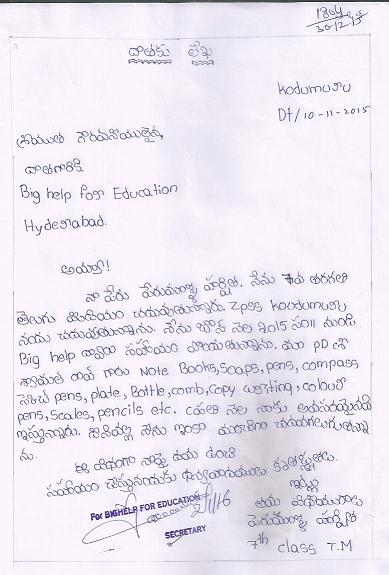 1864
30/12/15
దాతకు లేఖ
Kodumuru
Dt/10-11-2015
శ్రీయుత గౌరవనీయులైన,
దాతగారికి
Big help for Education
Hyderabad.
అయ్యా!
నా పేరు పేరుమాళ్ళ హర్షిత. నేను 7వ తరగతి
తెలుగు మీడియం చదువుతున్నాను. Zpss Koodumuru
నందు చదువుతున్నాను. నేను జూన్ నెల 2015 సం॥ నుండి
Big help ద్వారా సహాయం పొందుతున్నాను. మా PD
గారు Note Books, Soaps, pens, compass
pens, plate, Bottle, comb, Copy writing, colour
pens, Scales, pencils etc. ప్రతి నెల నాకు అవసరమైనవి
ఇస్తున్నారు. నేను ఇంకా బాగా చదువగలుగుతున్నా
ను.
ఈ విధంగా నాపై దయ ఉంచి
సహాయం చేస్తున్నందుకు ధన్యవాదములు కృతజ్ఞతలు.
ఇట్లు
తమ విధేయురాలు
పేరుమాళ్ళ హర్షిత
7th class T.M
For BIGHELP FOR EDUCATION
2/1/16
SECRETARY